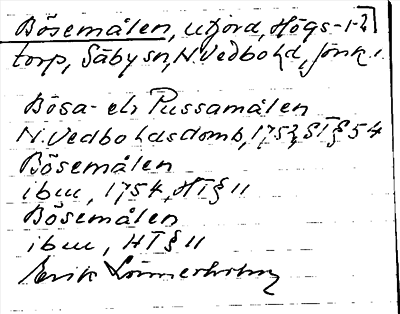 Bösemålen, utjord, Högs-
torp, Säby sn, N. Vedbo hd, Jönk.l.
Bösa- elr Pussamålen
N. Vedbo hds domb, 1753, ST § 54
Bösemålen
ibm, 1754, HT § 11
Bösemålen
ibm, HT § 11
Erik